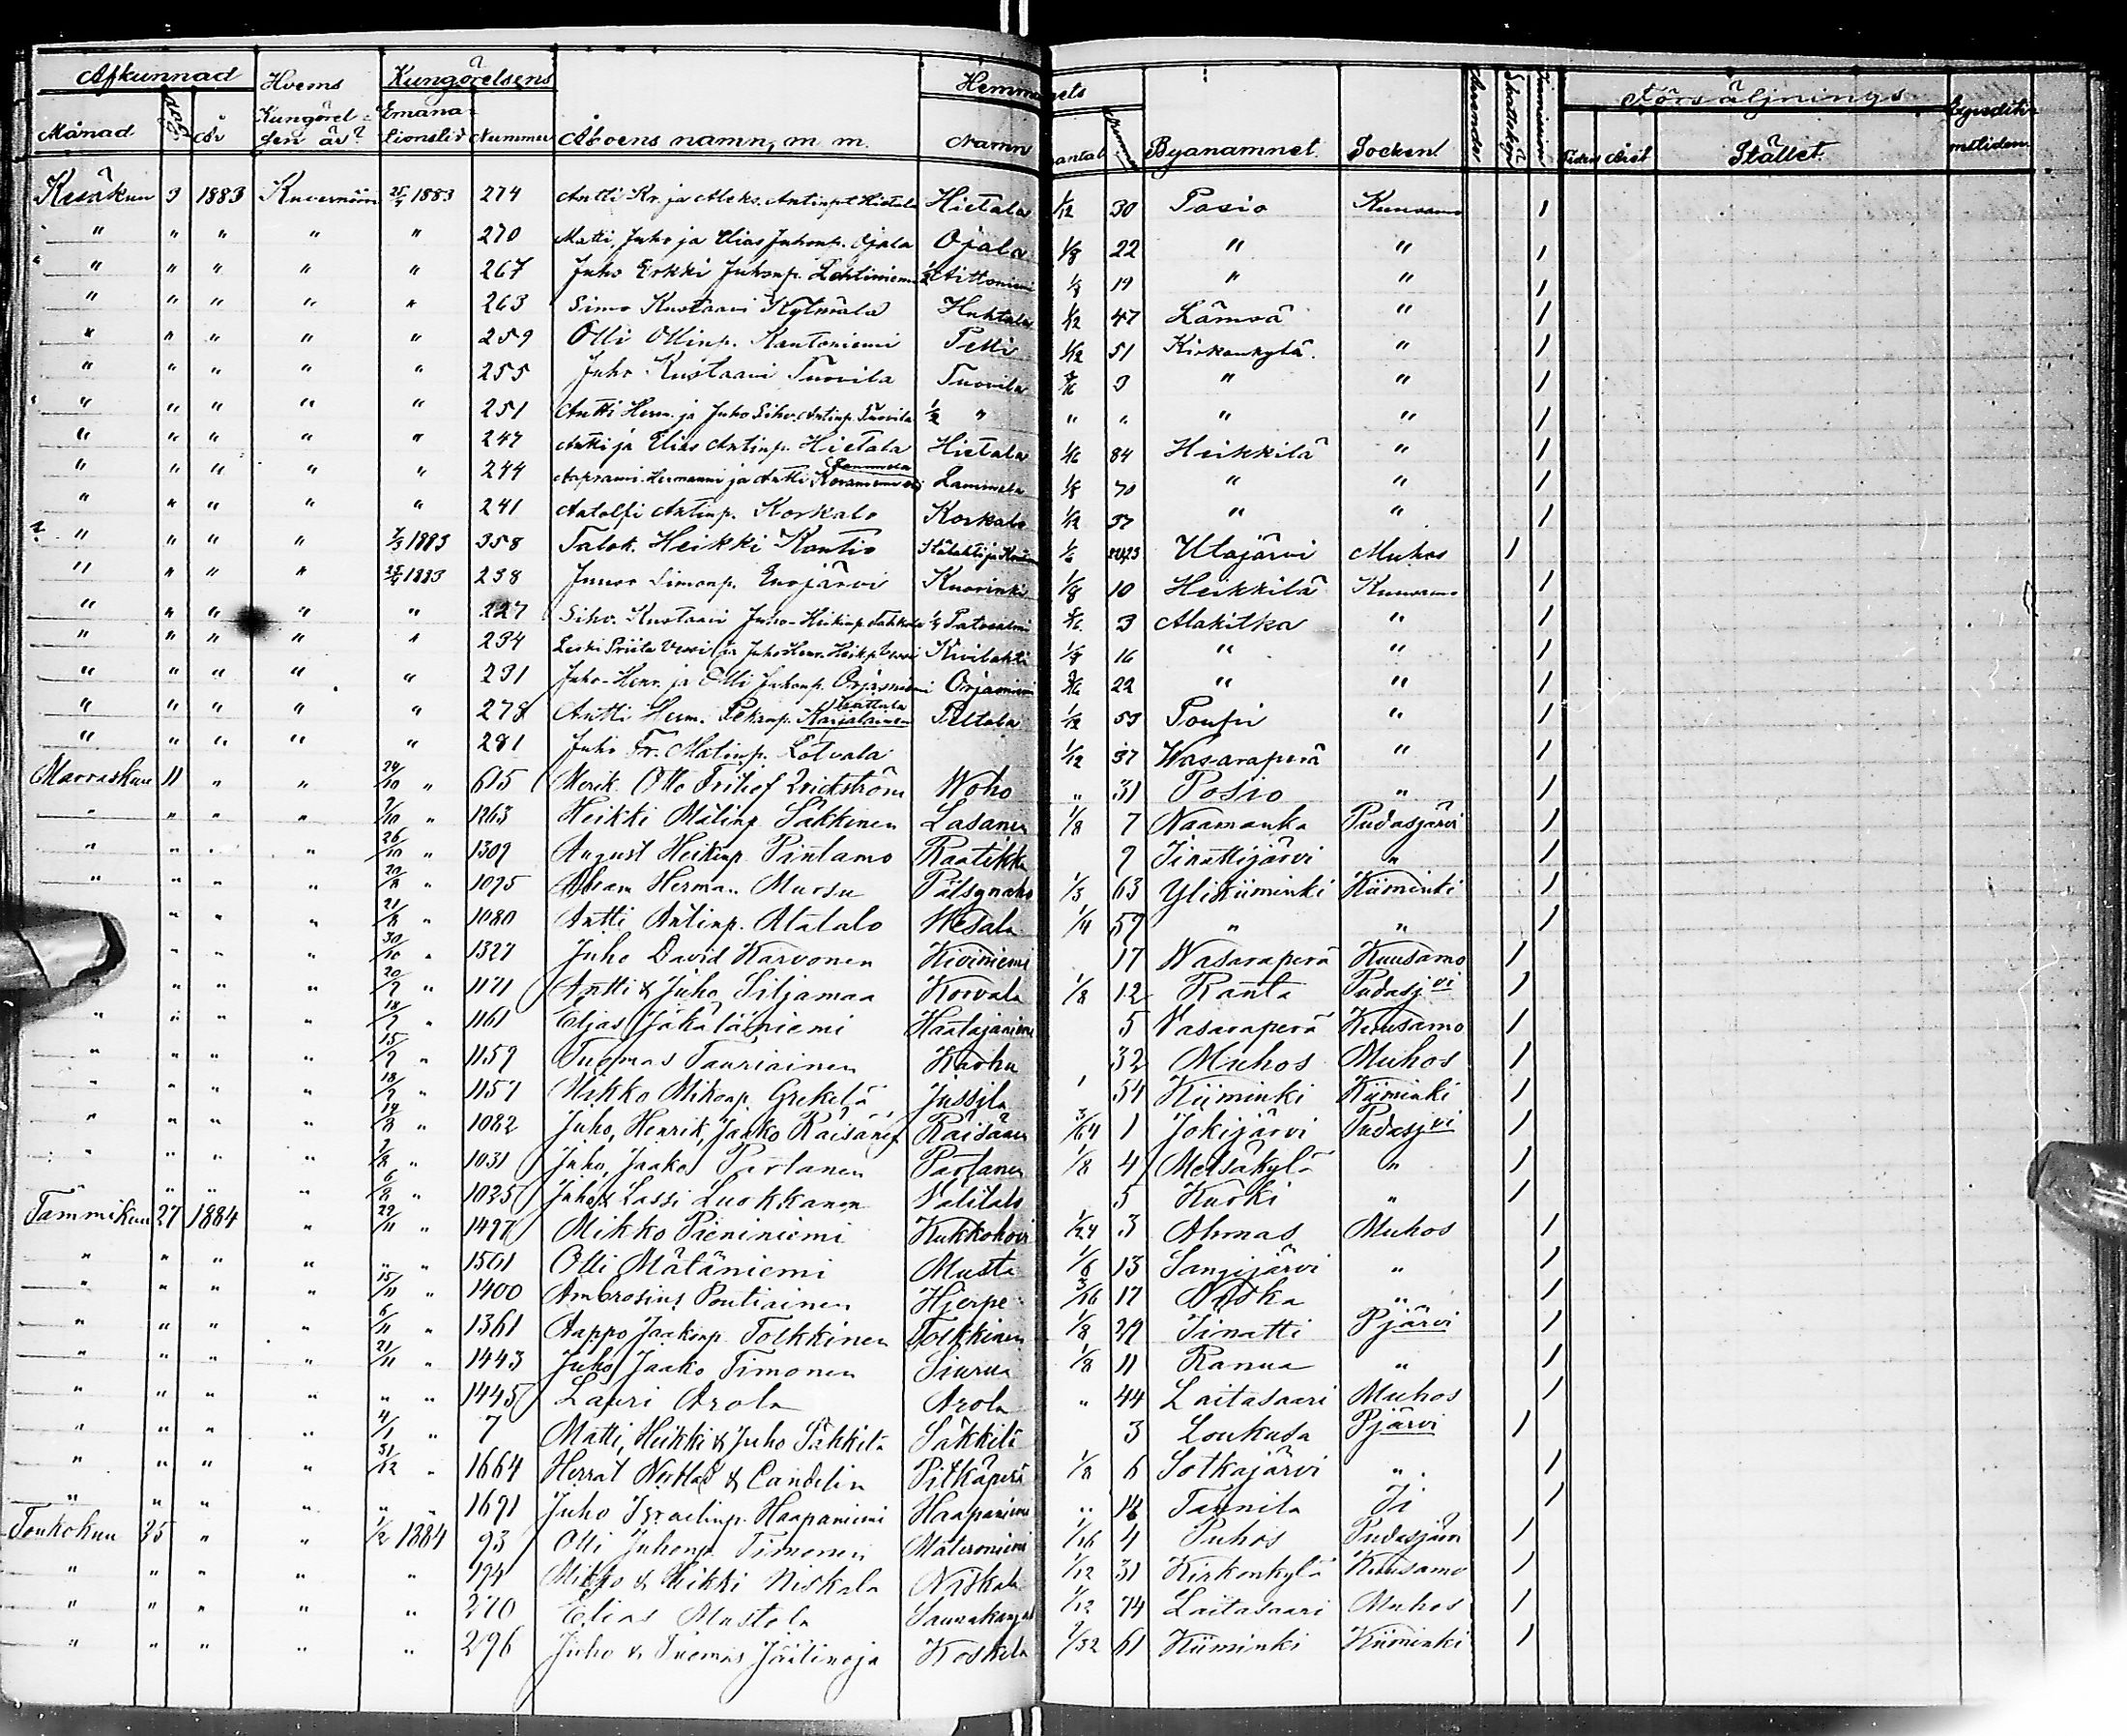 Afkunnad Hvems Kungörelsens Hemmanets Försäljnings Expedit.
Månad dag År Kungörelsen är? Emanationstid Nummer Åboens namn, m. m. Namn mantal Nummer Byanamnet. Socken Skatteköp Immission Tiden Året Stället
Kesäkuu 3 1883 Kuvernöörin 25/4 1883 274 Antti Kr. ja Aleks. Antinp. Hietala Hietala 1/12 30 Posio Kuusamo 1
" " " " " 270 Matti, Juho ja Elias Juhonp. Ojala Ojala 1/8 22 " " 1
" " " " " 267 Juho Erkki Juhonp. Lehtiniemi 1/2 Aittoniemi 1/8 19 " " 1
" " " " " 263 Simo Kustaavi Kylmälä Huhtala 1/12 47 Lämsä " 1
" " " " " 259 Olli Ollinp. Kantoniemi Petti 1/12 51 Kirkonkylä " 1
" " " " " 255 Juho Kustaavi Tuovila Tuovila 3/16 3 " " 1
" " " " " 251 Antti Herm. ja Juho Sihv. Antinp. Tuovila 1/2 " " " " " 1
" " " " " 247 Antti ja Elias Antinp. Hietala Hietala 1/16 84 Heikkilä " 1
" " " " " 244 Aaprami Hermanni ja Antti Lammela Lammela 1/8 70 " " 1
" " " " " 241 Aatolfi Antinp. Korkalo Korkalo 1/12 37 " " 1
" " " " 7/3 1883 358 Talok. Heikki Kontio 1/6 Utajärvi Muhos 1
" " " " 25/4 1883 238 Junno Simonp. Enojärvi Kuorinki 1/8 10 Heikkilä Kuusamo 1
" " " " " 227 Sihv. Kustaavi Juho-Heikinp. Tahkola 3 Alakitka " 1
" " " " " 234 Leski Priita Vessi ja Juho Henr. Heikp. Vessi Kivilahti 1/8 16 " " 1
" " " " " 231 Juho-Henr. ja Olli Juhonp. Orjasniemi Orjasniemi 3/16 22 " " 1
" " " " " 278 Antti Herm. Pekanp. Karjalainen Peltola 1/12 53 " 1
" " " " " 281 Juho Fr. Matinp. Lotvala 1/12 37 Wasaraperä " 1
Marraskuu 11 " " 24/10 " 615 Otto Fritiof Wickström Woho " 31 Posio " 1
" " " " 7/10 " 1263 Heikki Matinp. Säkkinen Lasanen 1/8 7 Naamanka Pudasjärvi 1
" " " " 26/10 " 1309 August Heikinp. Pintamo Raatikka 9 Iinattijärvi " 1
" " " " 20/8 " 1095 Abram Herman Mursu 1/3 63 Ylikiiminki Kiiminki 1
" " " " 21/8 " 1080 Antti Antinp. Alatalo Wesala 1/4 57 " " 1
" " " " 30/10 " 1327 Juho David Karvonen Kiviniemi 17 Wasaraperä Kuusamo 1
" " " " 20/9 " 1171 Antti & Juho Siljamaa Koivala 1/8 12 Ranta Pudasjvi 1
" " " " 18/9 " 1161 Eljas Jäkäläniemi Haatajaniemi 5 Vasaraperä Kuusamo 1
" " " " 15/9 " 1159 Tuomas Tauriainen Karhu 32 Muhos Muhos 1
" " " " 18/9 " 1157 Mikko Mikonp. Grekelä Jussila 1 54 Kiiminki Kiiminki 1
" " " " 14/8 " 1082 Juho, Henrik, Jaako Räisänen Räisänen 3/64 1 Jokijärvi Pudasjvi 1
" " " " 7/8 " 1031 Juho, Jaako Partanen Partanen 1/8 4 Metsäkylä " 1
" " " " 6/8 " 1025 Juho & Lassi Luokkanen Välitalo 5 Kurki " 1
Tammikuu 27 1884 " 29/11 " 1497 Mikko Pieniniemi Kukkohovi 1/24 3 Ahmas Muhos 1
" " " " " " 1501 Olli Mätäniemi Musta 1/6 13 Sangijärvi " 1
" " " " 15/11 " 1400 Ambrosius Pontiainen Hjerpe 3/16 17 Niska " 1
" " " " 6/11 " 1361 Aappo Jaakonp. Tolkkinen Tolkkinen 1/8 29 Iinatti Pjärvi 1
" " " " 21/11 " 1443 Juho Jaako Timonen Siurua 1/8 11 Ranua " 1
" " " " " " 1445 Lauri Arola Arola " 44 Laitasaari Muhos 1
" " " " 4/1 " 7 Matti, Heikki & Juho Säkkilä Säkkilä 3 Loukusa Pjärvi 1
" " " " 31/12 " 1664 Herrat & Candelin Pitkäperä 1/8 6 Sotkajärvi " 1
" " " " " " 1691 Juho Israelinp. Haapaniemi Haapaniemi " Tannila Ii 1
Toukokuu 25 " " 1/2 1884 93 Olli Juhonp. Timonen Materoniemi 1/16 4 Puhos Pudasjärvi 1
" " " " " 194 Mikko & Heikki Niskala Niskala 1/12 31 Kirkonkylä Kuusamo 1
" " " " " 270 Elias Mustola Saunakangas 1/12 74 Laitasaari Muhos 1
" " " " " 296 Juho & Tuomas Jäälinoja Koskela 7/32 61 Kiiminki Kiiminki 1